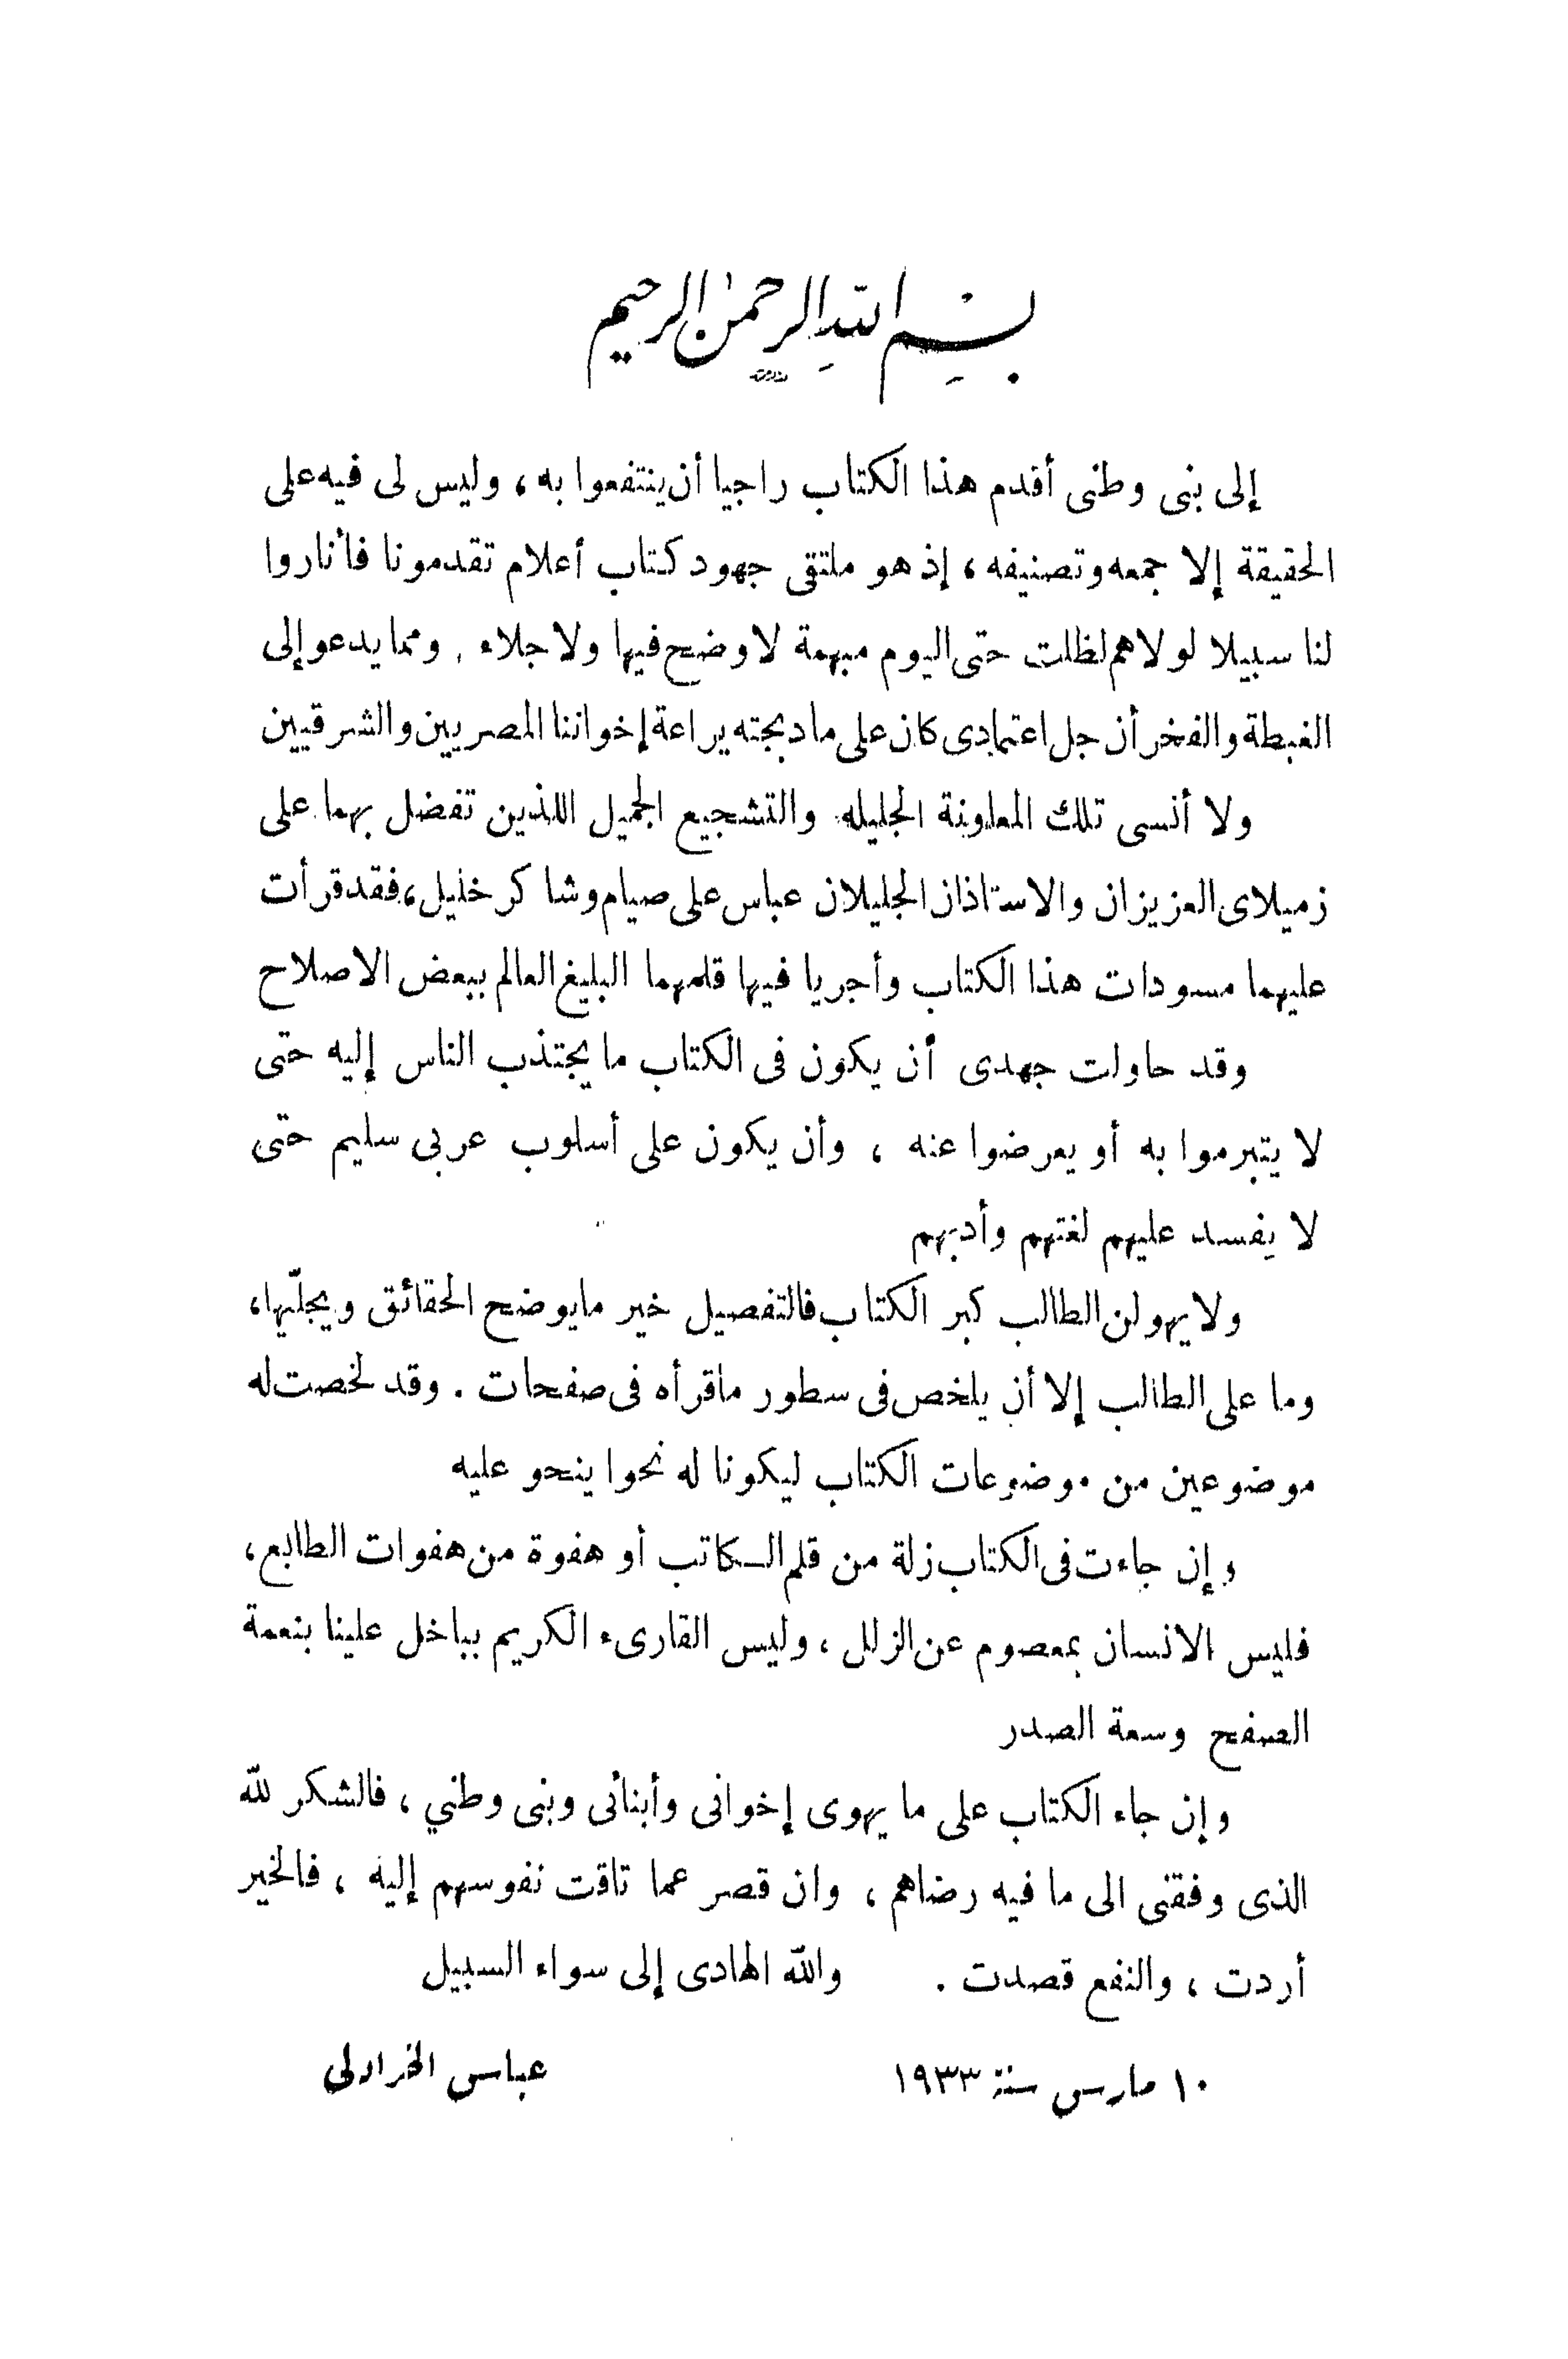 بسم الله الرحمن الرحيم
إلى بنى وطنى أقدم هذا الكتاب راجيا أن ينتفعوا به ، وليس لى فيه على
الحقيقة إلا جمعه وتصنيفه ، إذ هو ملتقى جهود كتاب أعلام تقدمونا فأناروا
لنا سبيلا لولاهم لظلت حتى اليوم مبهمة لا وضح فيها ولا جلاء . ومما يدعو إلى
الغبطة والفخر أن جل اعتمادى كان على ما دبجته يراعة إخواننا المصريين والشرقيين
ولا أنسى تلك المعاونة الجليله والتشجيع الجميل اللذين تفضل بهما على
زميلاى العزيزان والاستاذان الجليلان عباس على صيام وشاكر خليل ، فقد قرأت
عليهما مسودات هذا الكتاب وأجريا فيها قلمهما البليغ العالم ببعض الاصلاح
وقد حاولت جهدى أن يكون فى الكتاب ما يجتذب الناس إليه حتى
لا يتبرموا به أو يعرضوا عنه ، وأن يكون على أسلوب عربى سليم حتى
لا يفسد عليهم لغتهم وأدبهم
ولا يهولن الطالب كبر الكتاب فالتفصيل خير ما يوضح الحقائق ويجلّيها ،
وما على الطالب إلا أن يلخص فى سطور ما قرأه فى صفحات . وقد لخصت له
موضوعين من موضوعات الكتاب ليكونا له نحوا ينحو عليه
وإن جاءت فى الكتاب زلة من قلم الكاتب أو هفوة من هفوات الطابع ،
فليس الانسان بمعصوم عن الزلل ، وليس القارىء الكريم بباخل علينا بنعمة
الصفح وسعة الصدر
وإن جاء الكتاب على ما يهوى إخوانى وأبنائى وبنى وطني ، فالشكر لله
الذى وفقنى الى ما فيه رضاهم ، وان قصر عما تاقت نفوسهم إليه ، فالخير
أردت ، والنفع قصدت . والله الهادى إلى سواء السبيل
١٠ مارس سنة ١٩٣٣ عباس الخرادلى